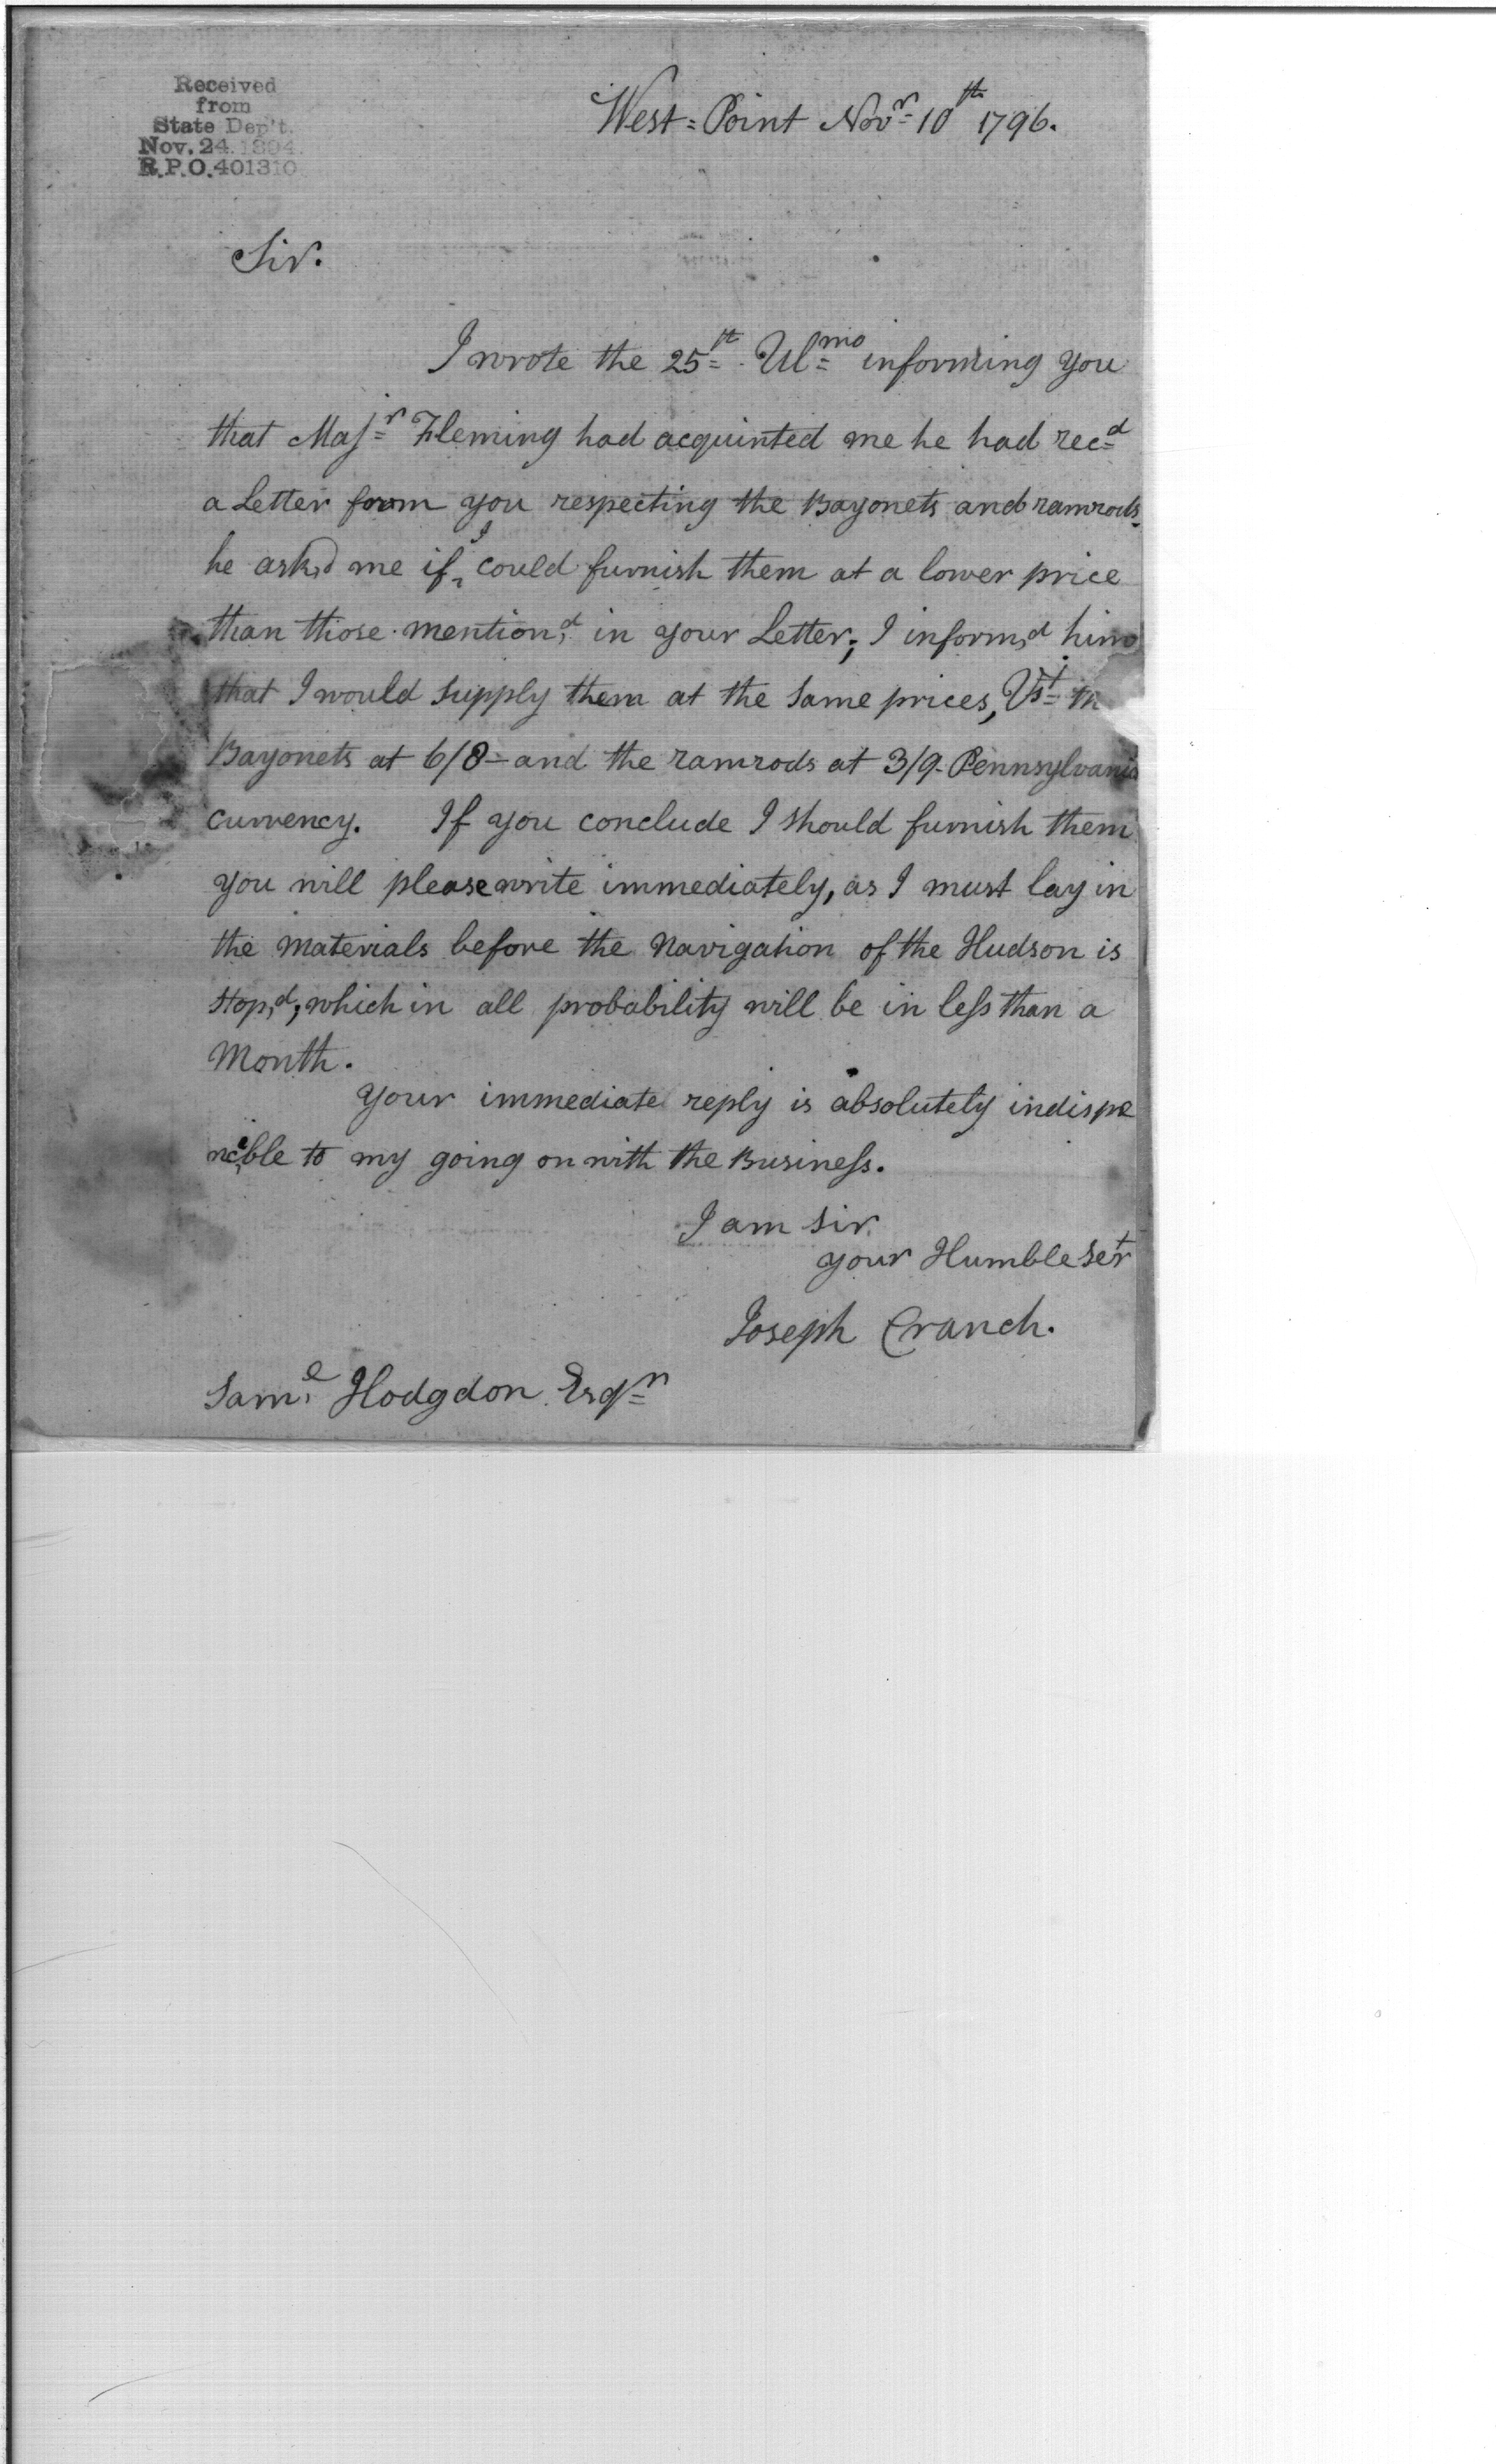 Received
from
State Dep't.
Nov. 24. 1894.
R.P.O. 401310
West=Point Novr 10th 1796.
Sir.
I wrote the 25th Ulmo informing you
that Majr Fleming had acquinted me he had recd
a Letter from you respecting the Bayonets and ramrods.
he ask,d me if I could furnish them at a lower price
than those mention,d in your Letter; I inform,d him
that I would supply them at the same prices, Vst th
Bayonets at 6/8 and the ramrods at 3/9 Pennsylvania
currency. If you conclude I should furnish them
you will please write immediately, as I must lay in
the materials before the Navigation of the Hudson is
stop,d, which in all probability will be in less than a
Month.
Your immediate reply is absolutely indispe
ncible to my going on with the Business.
I am Sir.
your Humble Sert
Joseph Cranch.
Saml Hodgdon Esqr